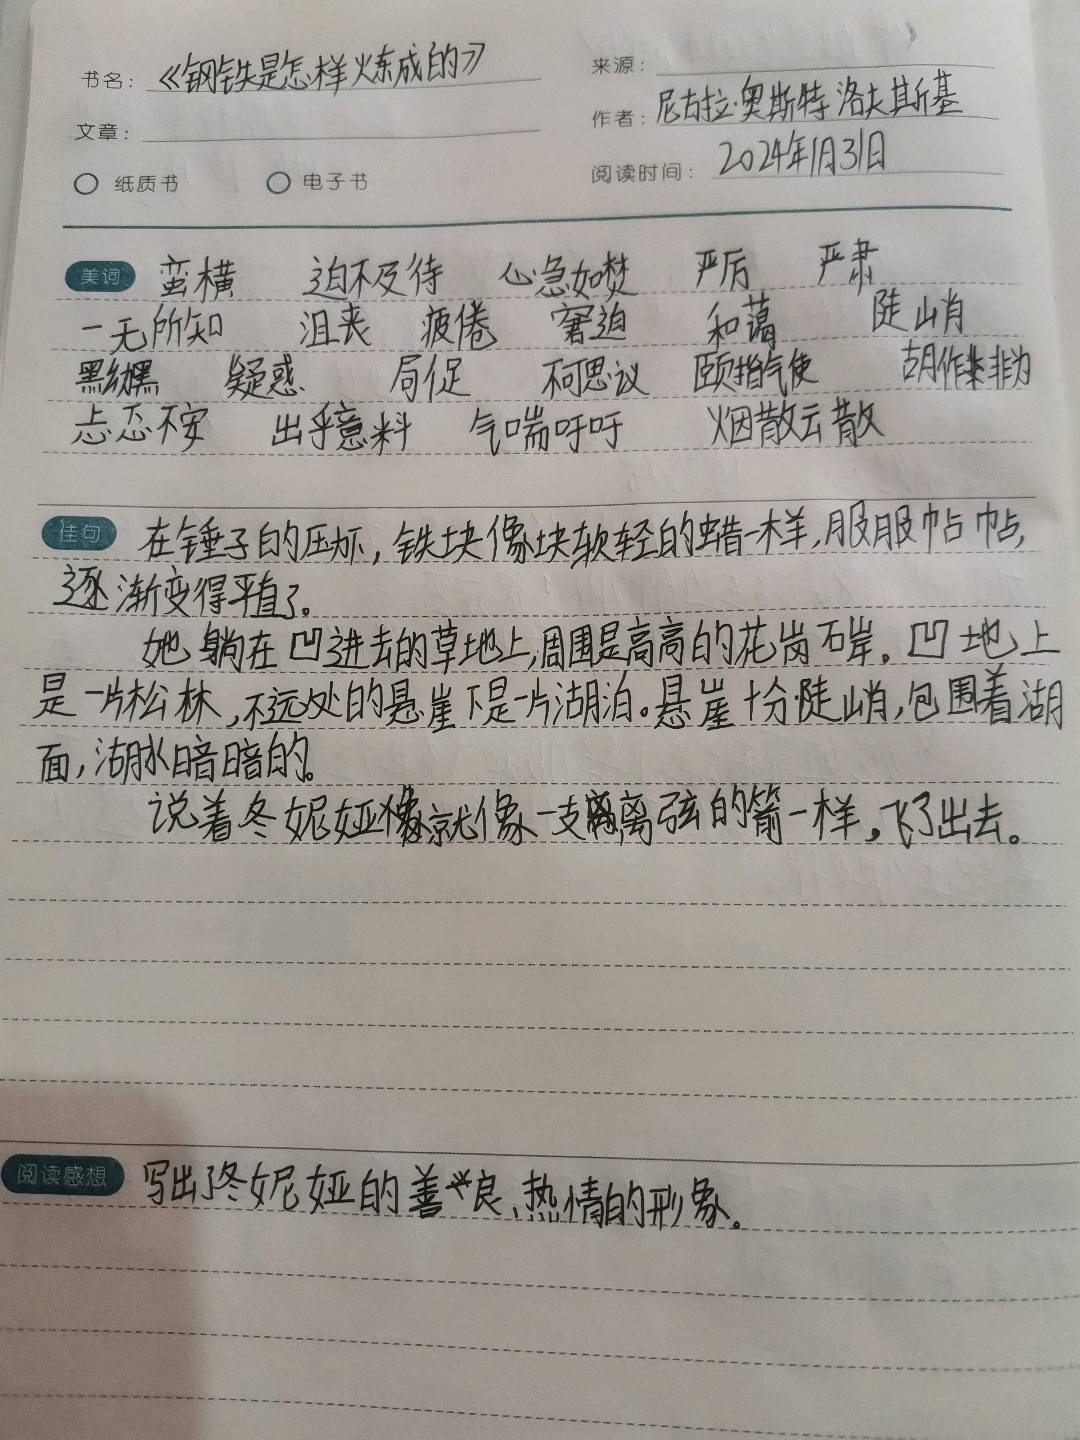 书名：《钢铁是怎样炼成的》
来源：
文章：
作者：尼古拉·奥斯特洛夫斯基
纸质书 电子书
阅读时间：2024年1月31日
美词 蛮横 迫不及待 心急如焚 严厉 严肃
一无所知 沮丧 疲倦 窘迫 和蔼 陡峭
黑黝黝 疑惑 局促 不可思议 颐指气使 胡作非为
忐忑不安 出乎意料 气喘吁吁 烟散云散
佳句 在锤子的压下，铁块像块软轻的蜡一样，服服帖帖，
逐渐变得平直了。
她躺在凹进去的草地上，周围是高高的花岗石岸。凹地上
是一片松林，不远处的悬崖下是一片湖泊。悬崖十分陡峭，包围着湖
面，湖水暗暗的。
说着冬妮娅就像一支离弦的箭一样，飞了出去。
阅读感想 写出了冬妮娅的善良、热情的形象。